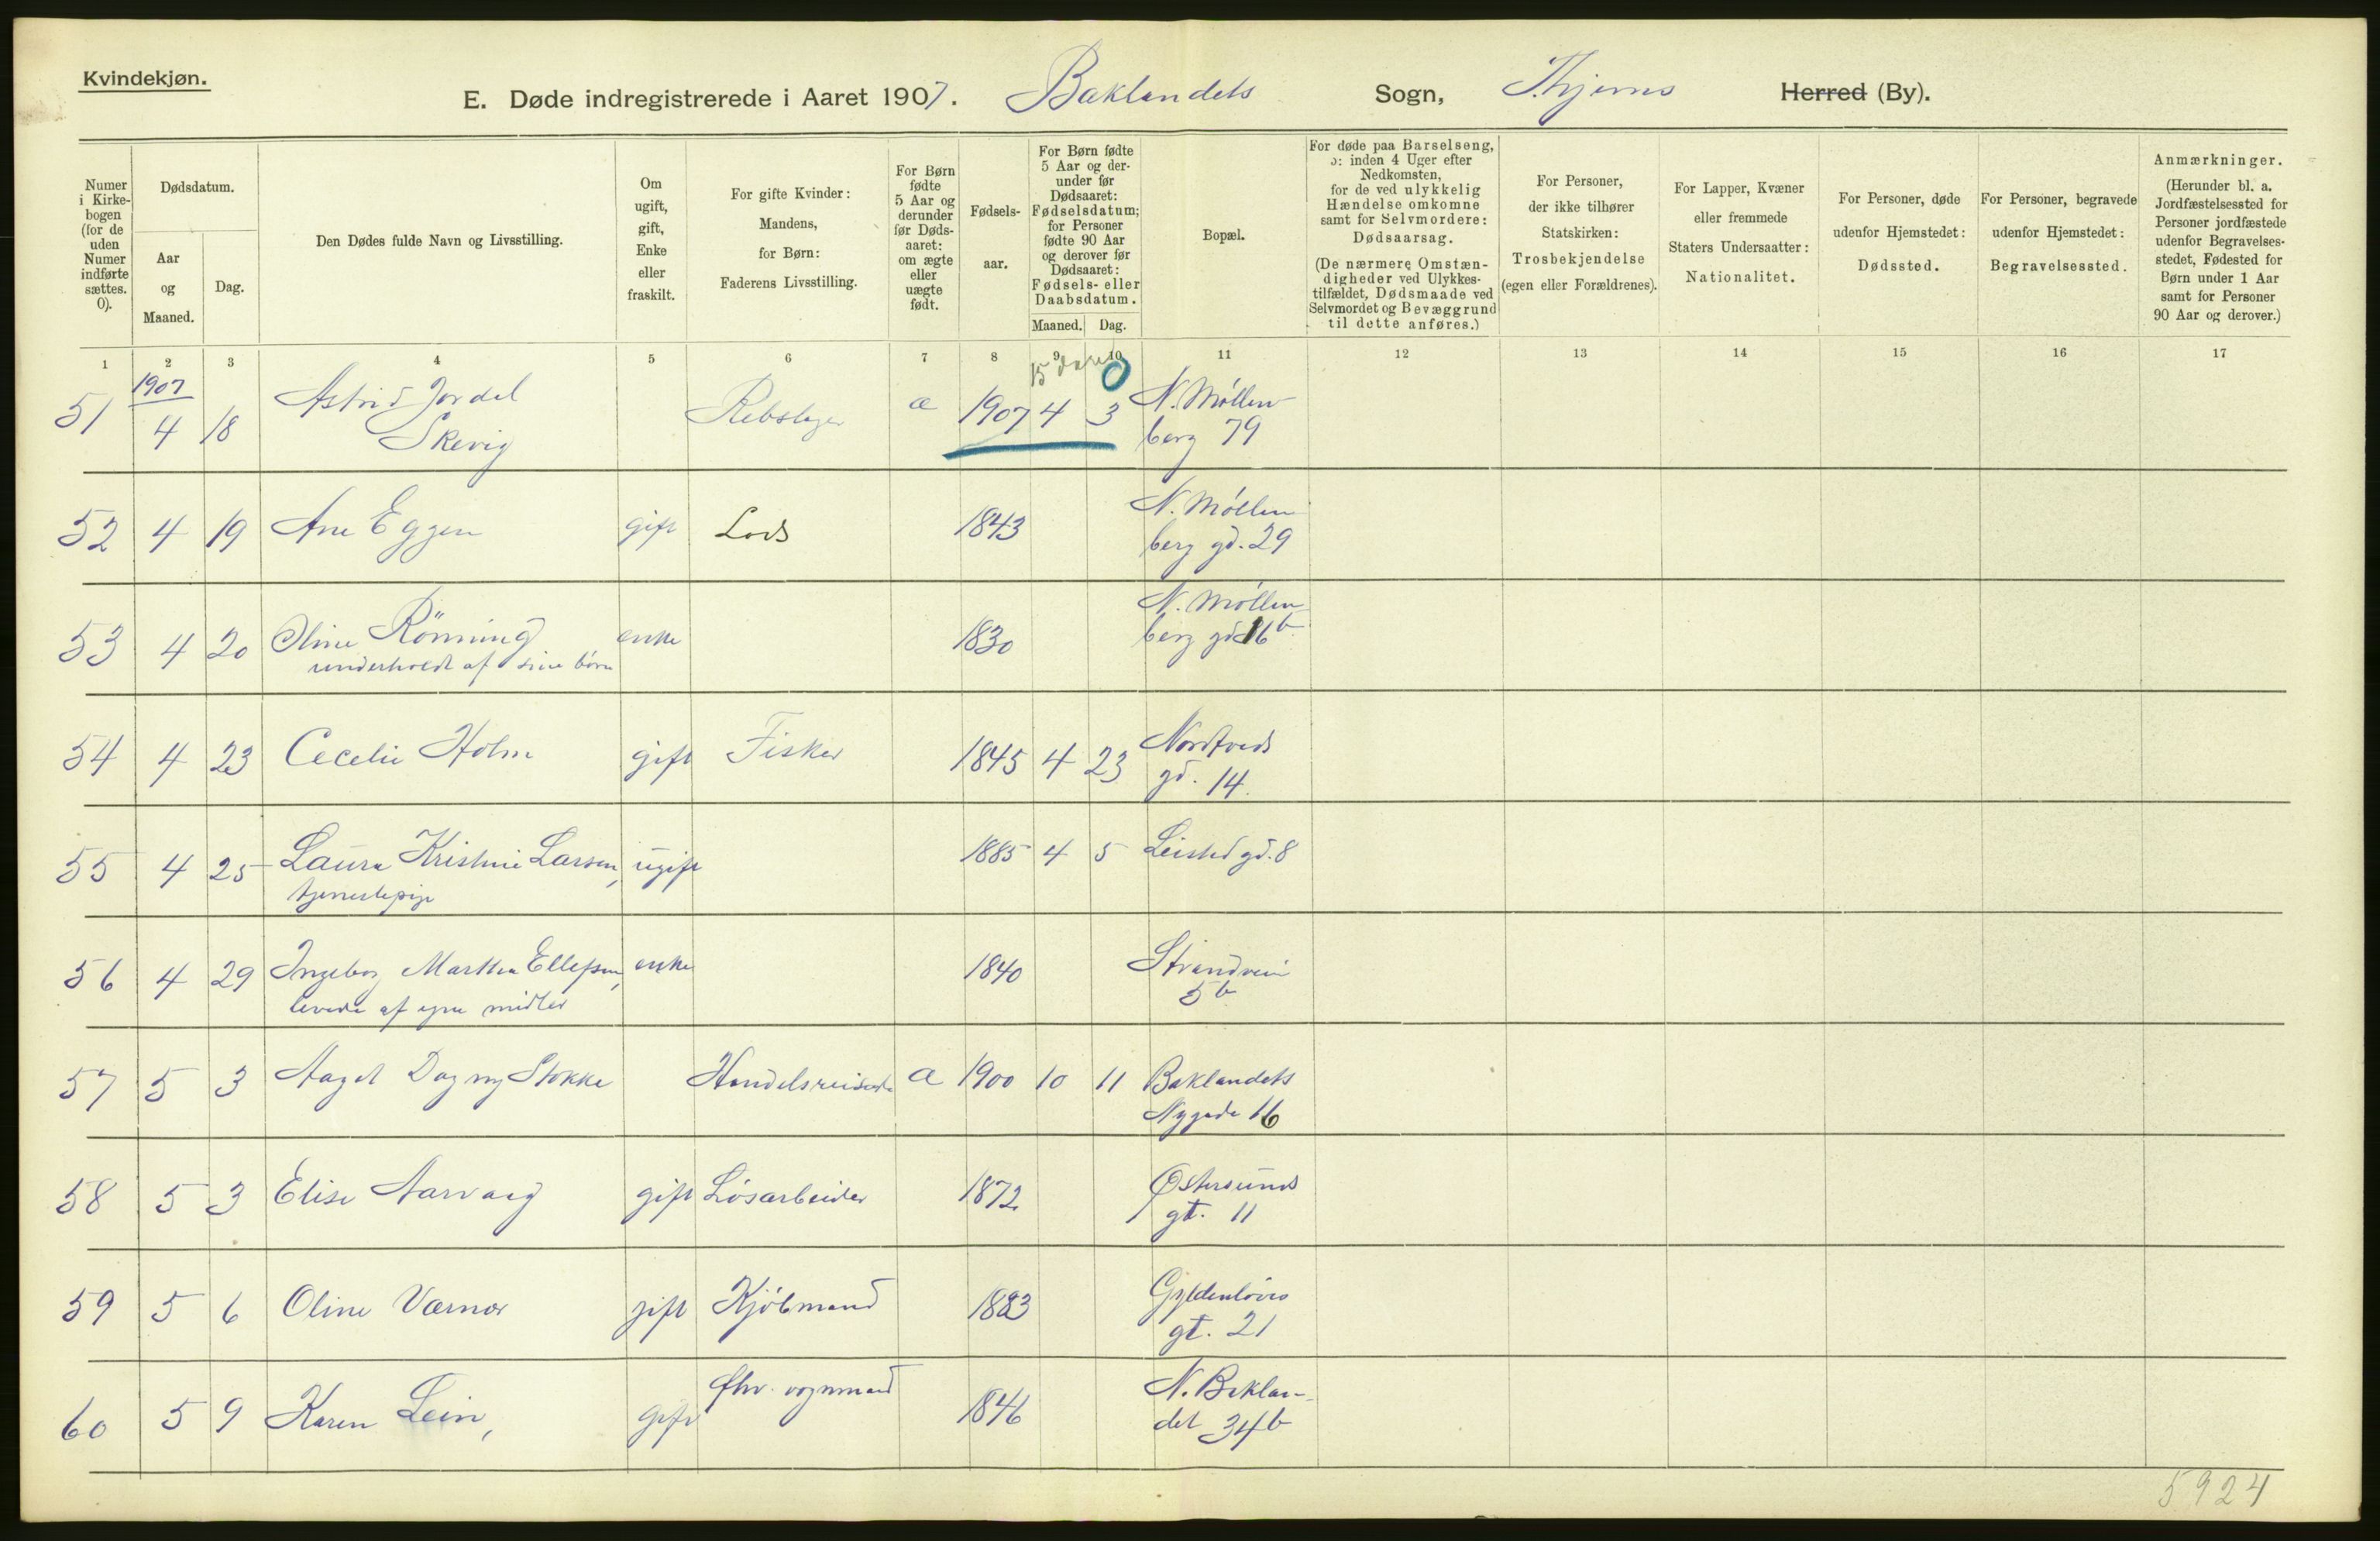 Kvindekjøn.
E. Døde indregistrerede i Aaret 1907. Baklandets Sogn, Thjems Herred (By).
Numer i Kirkebogen (for de uden Numer indførte sættes. 0).
Dødsdatum.
Aar og Maaned.
Dag.
Den Dødes fulde Navn og Livsstilling.
Om ugift, gift, Enke eller fraskilt.
For gifte Kvinder: Mandens, for Børn: Faderens Livsstilling.
For Børn fødte 5 Aar og derunder før Dødsaaret: om ægte eller uægte født.
Fødselsaar.
For Børn fødte 5 Aar og derunder før Dødsaaret: Fødselsdatum; for Personer fødte 90 Aar og derover før Dødsaaret: Fødsels- eller Daabsdatum.
Maaned. Dag.
Bopæl.
For døde paa Barselseng, ɔ: inden 4 Uger efter Nedkomsten, for de ved ulykkelig Hændelse omkomne samt for Selvmordere: Dødsaarsag. (De nærmere Omstændigheder ved Ulykkestilfældet, Dødsmaade ved Selvmordet og Bevæggrund til dette anføres.)
For Personer, der ikke tilhører Statskirken: Trosbekjendelse (egen eller Forældrenes).
For Lapper, Kvæner eller fremmede Staters Undersaatter: Nationalitet.
For Personer, døde udenfor Hjemstedet: Dødssted.
For Personer, begravede udenfor Hjemstedet: Begravelsessted.
Anmærkninger. (Herunder bl. a. Jordfæstelsessted for Personer jordfæstede udenfor Begravelsesstedet, Fødested for Børn under 1 Aar samt for Personer 90 Aar og derover.)
1 2 3 4 5 6 7 8 9 10 11 12 13 14 15 16 17
15 dage 0
51 1907 4 18 Astrid Jordel Skevig Rebslager æ 1907 4 3 N. Møllenberg 79
52 4 19 Ane Eggen gift Lods 1843 N. Møllenberg gd. 29
53 4 20 Oline Rönning enke 1830 N. Møllenberg gd 16b
underholdt af sine børn
54 4 23 Cecelie Holm gift Fisker 1845 4 23 Nordtveds gd. 14.
55 4 25 Laura Kristine Larsen, ugift 1885 4 5 Leistad gd. 8
tjenestepige
56 4 29 Ingeborg Martha Ellefsen, enke 1840 Strandvein 5b
levede af egne midler
57 5 3 Aagot Dagny Stokke Handelsreisende æ 1900 10 11 Baklandets Nygade 16
58 5 3 Elise Aarvaag gift Løsarbeider 1872 Østersunds gt. 11
59 5 6 Oline Værnor gift Kjøbmand 1883 Gyldenløves gt. 21
60 5 9 Karen Lein, gift fhv. vognmand 1846 N. Baklandet 34b
5924